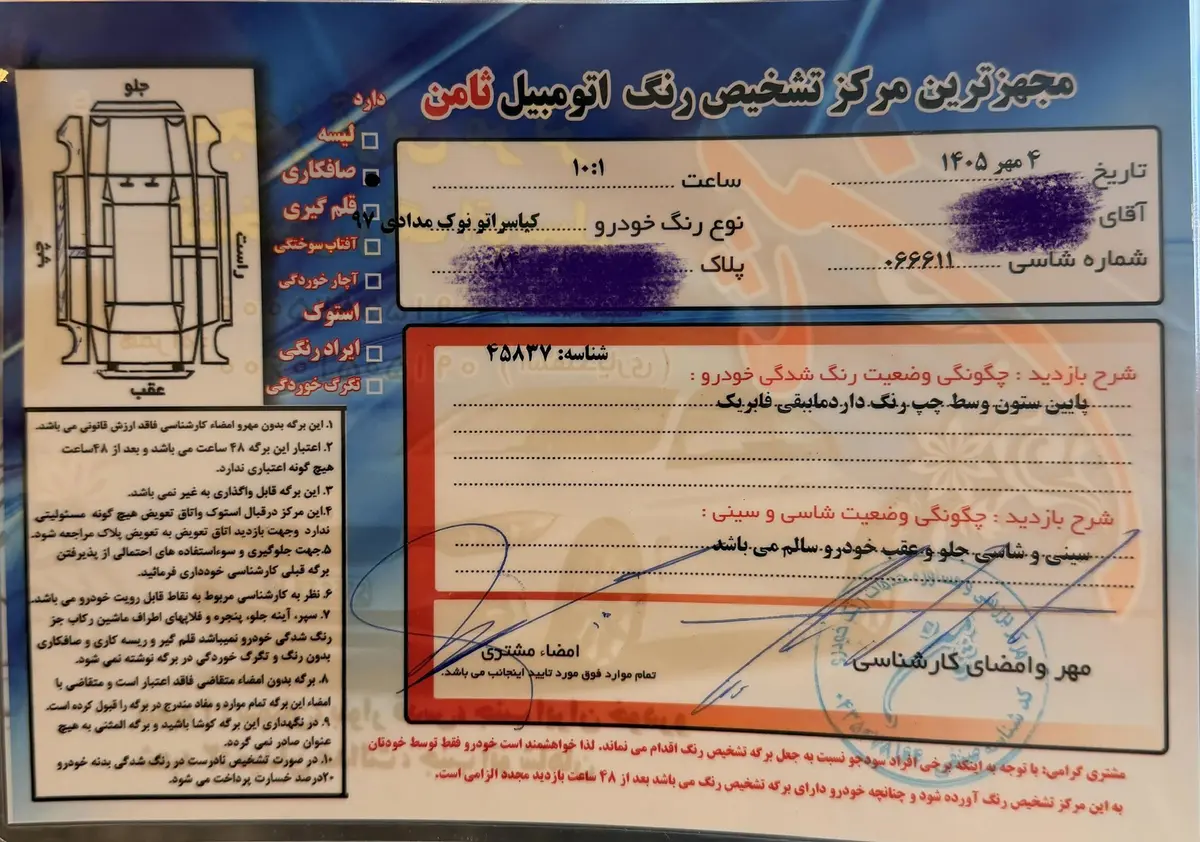 مجهزترین مرکز تشخیص رنگ اتومبیل ثامن
تاریخ ۴ مهر ۱۴۰۵
ساعت ۱۰:۱
آقای
نوع رنگ خودرو کیاسراتو نوک مدادی ۹۷
شماره شاسی ۰۶۶۶۱۱
پلاک
جلو
راست
چپ
عقب
دارد
لیسه
صافکاری
قلم گیری
آفتاب سوختگی
آچار خوردگی
استوک
ایراد رنگی
تگرگ خوردگی
شناسه: ۴۵۸۳۷
شرح بازدید : چگونگی وضعیت رنگ شدگی خودرو :
پایین ستون وسط چپ رنگ دارد مابقی فابریک
شرح بازدید : چگونگی وضعیت شاسی و سینی :
سینی و شاسی جلو و عقب خودرو سالم می باشد
مهر و امضای کارشناسی
امضاء مشتری
تمام موارد فوق مورد تایید اینجانب می باشد.
۱. این برگه بدون مهرو امضاء کارشناسی فاقد ارزش قانونی می باشد.
۲. اعتبار این برگه ۴۸ ساعت می باشد و بعد از ۴۸ساعت
هیچ گونه اعتباری ندارد.
۳. این برگه قابل واگذاری به غیر نمی باشد.
۴.این مرکز درقبال استوک واتاق تعویض هیچ گونه مسئولیتی
ندارد وجهت بازدید اتاق تعویض به تعویض پلاک مراجعه شود.
۵.جهت جلوگیری و سوءاستفاده های احتمالی از پذیرفتن
برگه قبلی کارشناسی خودداری فرمائید.
۶. نظر به کارشناسی مربوط به نقاط قابل رویت خودرو می باشد.
۷. سپر، آینه جلو، پنجره و فلاپهای اطراف ماشین رکاب جز
رنگ شدگی خودرو نمیباشد قلم گیر و ریسه کاری و صافکاری
بدون رنگ و تگرگ خوردگی در برگه نوشته نمی شود.
۸. برگه بدون امضاء متقاضی فاقد اعتبار است و متقاضی با
امضاء این برگه تمام موارد و مفاد مندرج در برگه را قبول کرده است.
۹. در نگهداری این برگه کوشا باشید و برگه المثنی به هیچ
عنوان صادر نمی گردد.
۱۰. در صورت تشخیص نادرست در رنگ شدگی بدنه خودرو
۲۰درصد خسارت پرداخت می شود.
مشتری گرامی: با توجه به اینکه برخی افراد سودجو نسبت به جعل برگه تشخیص رنگ اقدام می نماند. لذا خواهشمند است خودرو فقط توسط خودتان
به این مرکز تشخیص رنگ آورده شود و چنانچه خودرو دارای برگه تشخیص رنگ می باشد بعد از ۴۸ ساعت بازدید مجدد الزامی است.